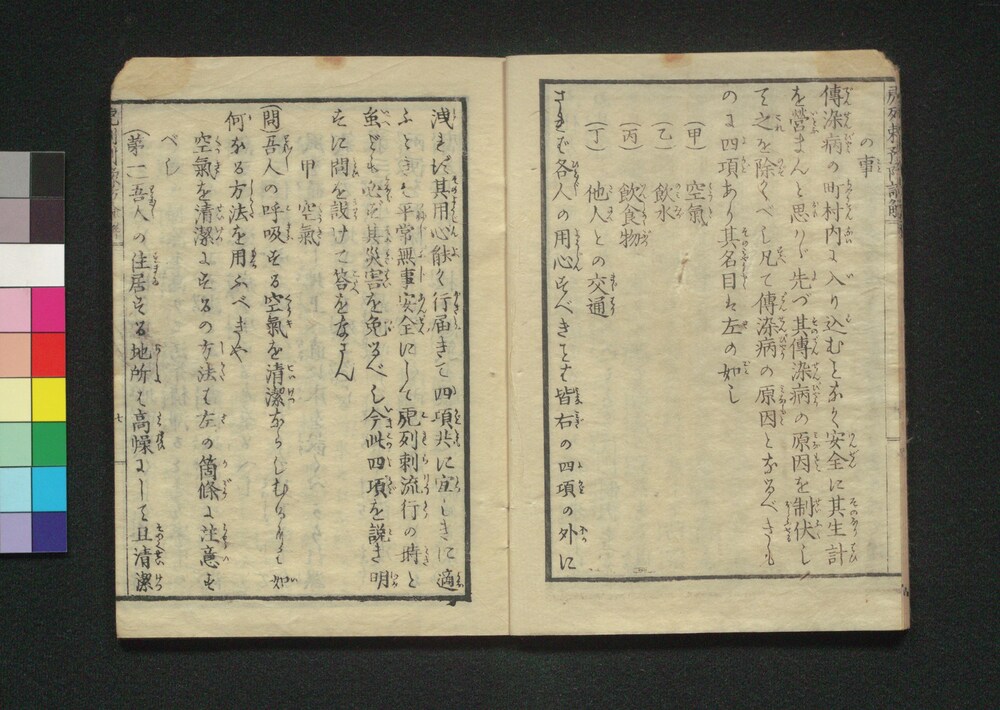 の事
傳染病の町村内に入り込むことなく安全に其生計
を營まんと思ハヾ先づ其傳染病の原因を制伏し
て之を除くべし凡て傳染病の原因となるべきも
の四項あり其名目は左の如し
(甲) 空氣
(乙) 飲水
(丙) 飲食物
(丁) 他人との交通
されば各人の用心すべきことは皆右の四項の外に
洩れず其用心能く行届きて四項共に宜しきに適
ふときは平常無事安全にして虎列刺流行の時と
雖ども必ず其災害を免るべし今此四項を説き明
すに問を設けて答をなさん
甲 空氣
(問)吾人の呼吸する空氣を清潔ならしむるには如
何なる方法を用ふべきや
空氣を清潔にするの方法は左の箇條に注意す
べし
(第一)吾人の住居する地所は高燥にして且清潔
七